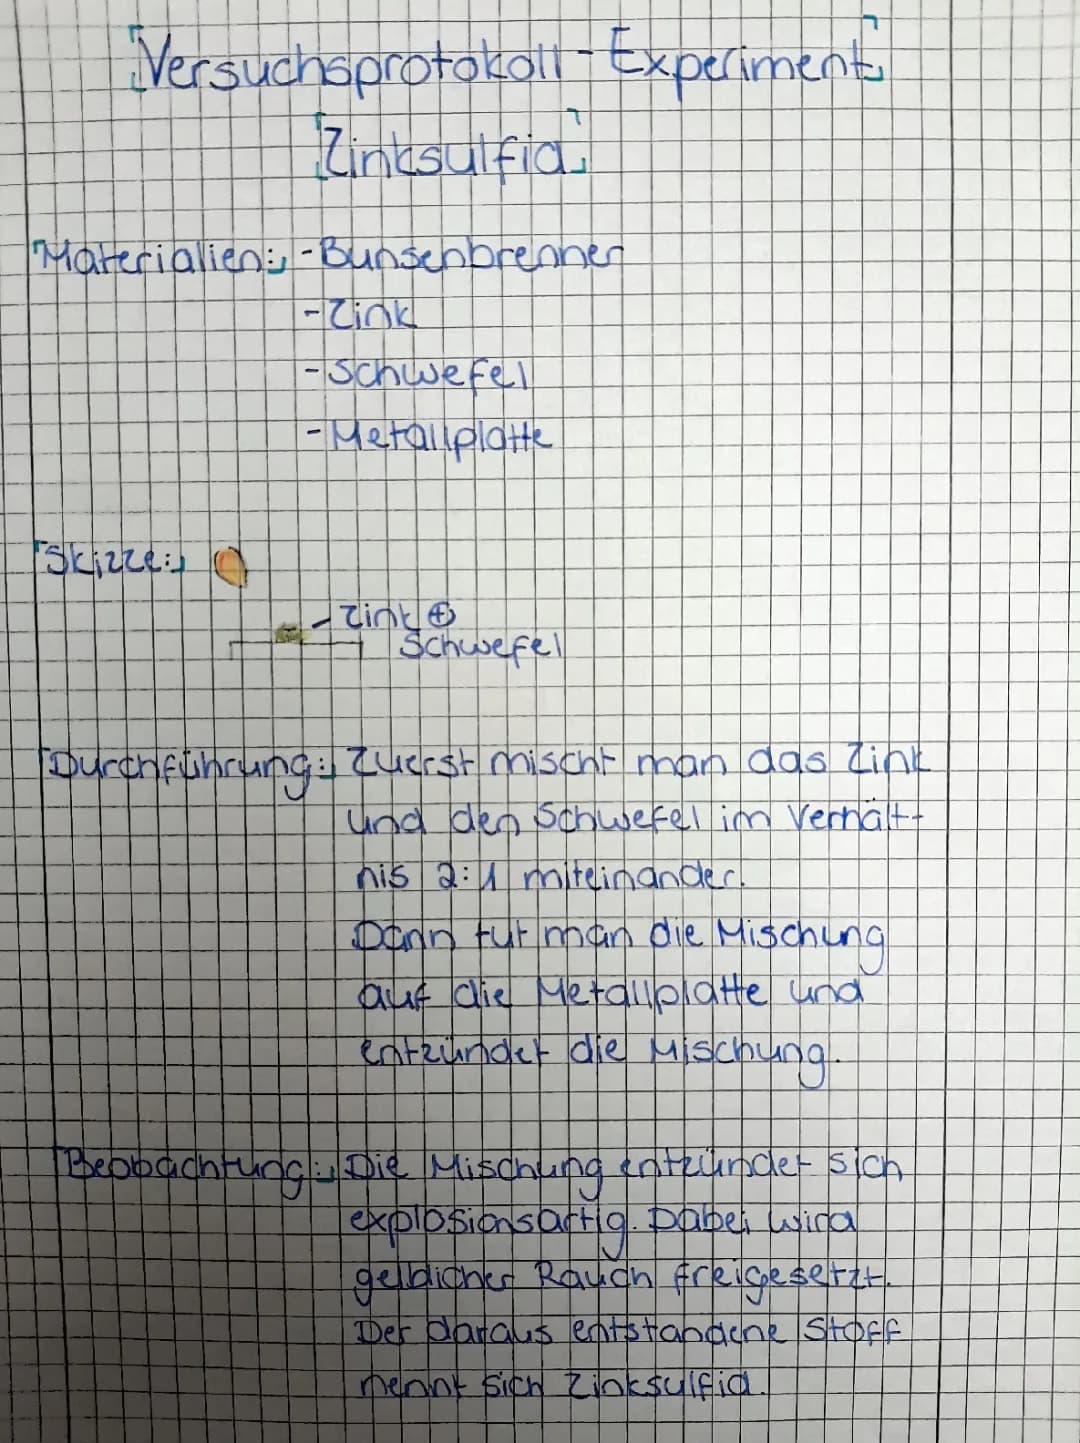 Versuchsprotokoll - Experiment
Zinksulfid
Materialien: - Bunsenbrenner
- Zink
- Schwefel
- Metallplatte
Skizze:
- Zink +
Schwefel
Durchführung: Zuerst mischt man das Zink
und den Schwefel im Verhält-
nis 2:1 miteinander.
Dann tut man die Mischung
auf die Metallplatte und
entzündet die Mischung.
Beobachtung: Die Mischung entzündet sich
explosionsartig. Dabei wird
gelblicher Rauch freigesetzt.
Der daraus entstandene Stoff
nennt sich Zinksulfid.